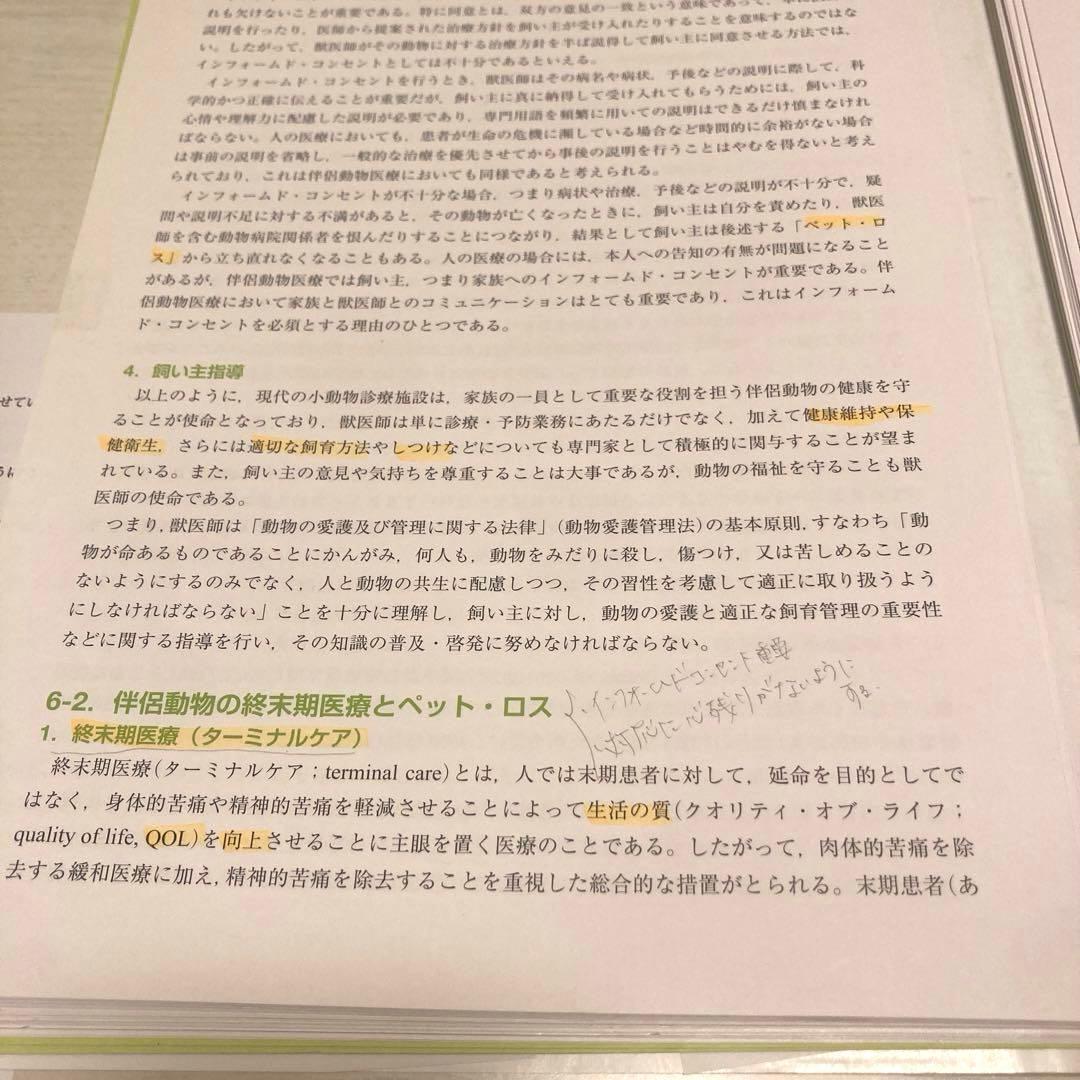 れも欠けないことが重要である。特に同意とは，双方の意見の一致という意味であって，
説明を行ったり，医師から提案された治療方針を飼い主が受け入れたりすることを意味するのではな
い。したがって，獣医師がその動物に対する治療方針を半ば説得して飼い主に同意させる方法では，
インフォームド・コンセントとしては不十分であるといえる。
インフォームド・コンセントを行うとき，獣医師はその病名や病状，予後などの説明に際して，科
学的かつ正確に伝えることが重要だが，飼い主に真に納得して受け入れてもらうためには，飼い主の
心情や理解力に配慮した説明が必要であり，専門用語を頻繁に用いての説明はできるだけ慎まなけれ
ばならない。人の医療においても，患者が生命の危機に瀕している場合など時間的に余裕がない場合
は事前の説明を省略し，一般的な治療を優先させてから事後の説明を行うことはやむを得ないと考え
られており，これは伴侶動物医療においても同様であると考えられる。
インフォームド・コンセントが不十分な場合，つまり病状や治療，予後などの説明が不十分で，疑
問や説明不足に対する不満があると，その動物が亡くなったときに，飼い主は自分を責めたり，獣医
師を含む動物病院関係者を恨んだりすることにつながり，結果として飼い主は後述する「ペット・ロ
ス」から立ち直れなくなることもある。人の医療の場合には，本人への告知の有無が問題になること
があるが，伴侶動物医療では飼い主，つまり家族へのインフォームド・コンセントが重要である。伴
侶動物医療において家族と獣医師とのコミュニケーションはとても重要であり，これはインフォーム
ド・コンセントを必須とする理由のひとつである。
4. 飼い主指導
以上のように，現代の小動物診療施設は，家族の一員として重要な役割を担う伴侶動物の健康を守
ることが使命となっており，獣医師は単に診療・予防業務にあたるだけでなく，加えて健康維持や保
健衛生，さらには適切な飼育方法やしつけなどについても専門家として積極的に関与することが望ま
れている。また，飼い主の意見や気持ちを尊重することは大事であるが，動物の福祉を守ることも獣
医師の使命である。
つまり，獣医師は「動物の愛護及び管理に関する法律」(動物愛護管理法)の基本原則，すなわち「動
物が命あるものであることにかんがみ，何人も，動物をみだりに殺し，傷つけ，又は苦しめることの
ないようにするのみでなく，人と動物の共生に配慮しつつ，その習性を考慮して適正に取り扱うよう
にしなければならない」ことを十分に理解し，飼い主に対し，動物の愛護と適正な飼育管理の重要性
などに関する指導を行い，その知識の普及・啓発に努めなければならない。
・インフォームドコンセント重要
・対応に心残りがないように
する．
6-2. 伴侶動物の終末期医療とペット・ロス
1. 終末期医療（ターミナルケア）
終末期医療(ターミナルケア；terminal care)とは，人では末期患者に対して，延命を目的としてで
はなく，身体的苦痛や精神的苦痛を軽減させることによって生活の質(クオリティ・オブ・ライフ；
quality of life, QOL)を向上させることに主眼を置く医療のことである。したがって，肉体的苦痛を除
去する緩和医療に加え，精神的苦痛を除去することを重視した総合的な措置がとられる。末期患者(あ